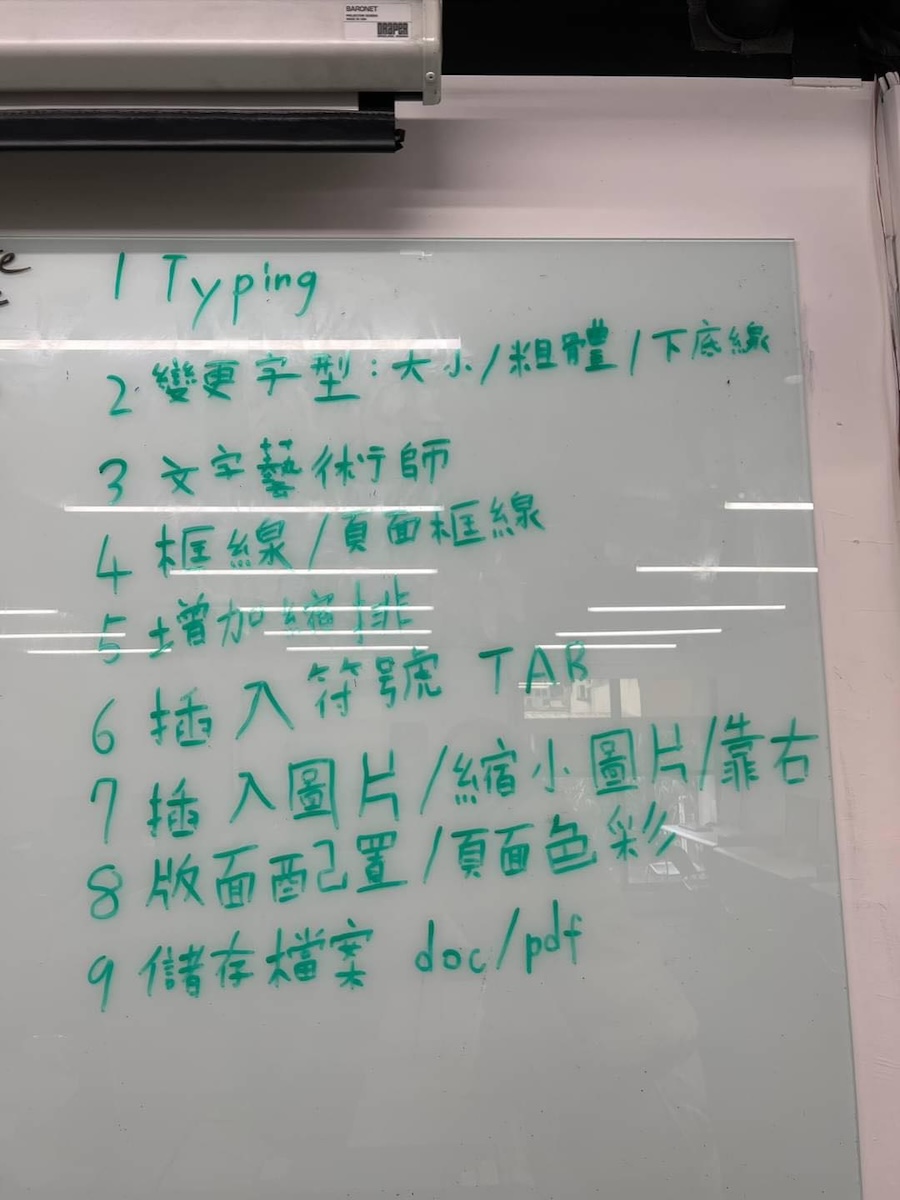 BARONET
DRAPER
1 Typing
2 變更字型:大小/粗體/下底線
3 文字藝術師
4 框線/頁面框線
5 增加縮排
6 插入符號 TAB
7 插入圖片/縮小圖片/靠右
8 版面配置/頁面色彩
9 儲存檔案 doc/pdf